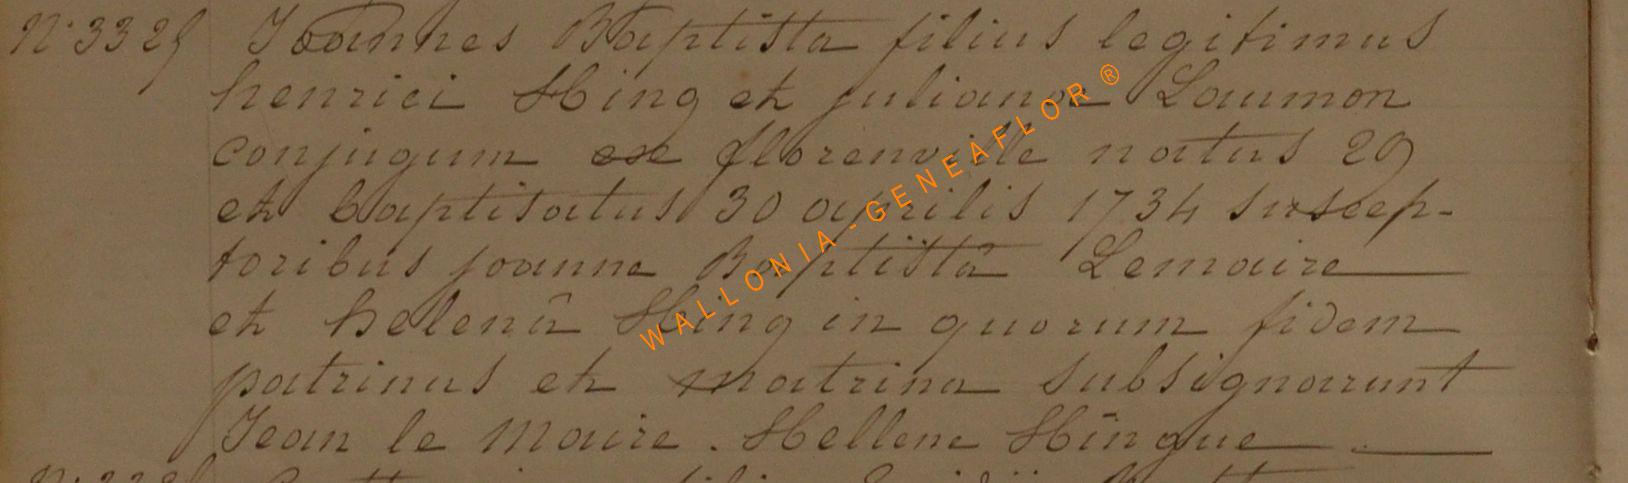 N° 3325 Joannes Baptista filius legitimus
henrici Hing et julianæ Laumon
conjugum ex florenville natus 29
et baptisatus 30 aprilis 1734 suscep-
toribus joanne Baptistâ Lemaire
et helenâ Hing in quorum fidem
patrinus et matrina subsignarunt
Jean le Maire . Hellene Hingue
WALLONIA-GENEAFLOR ®